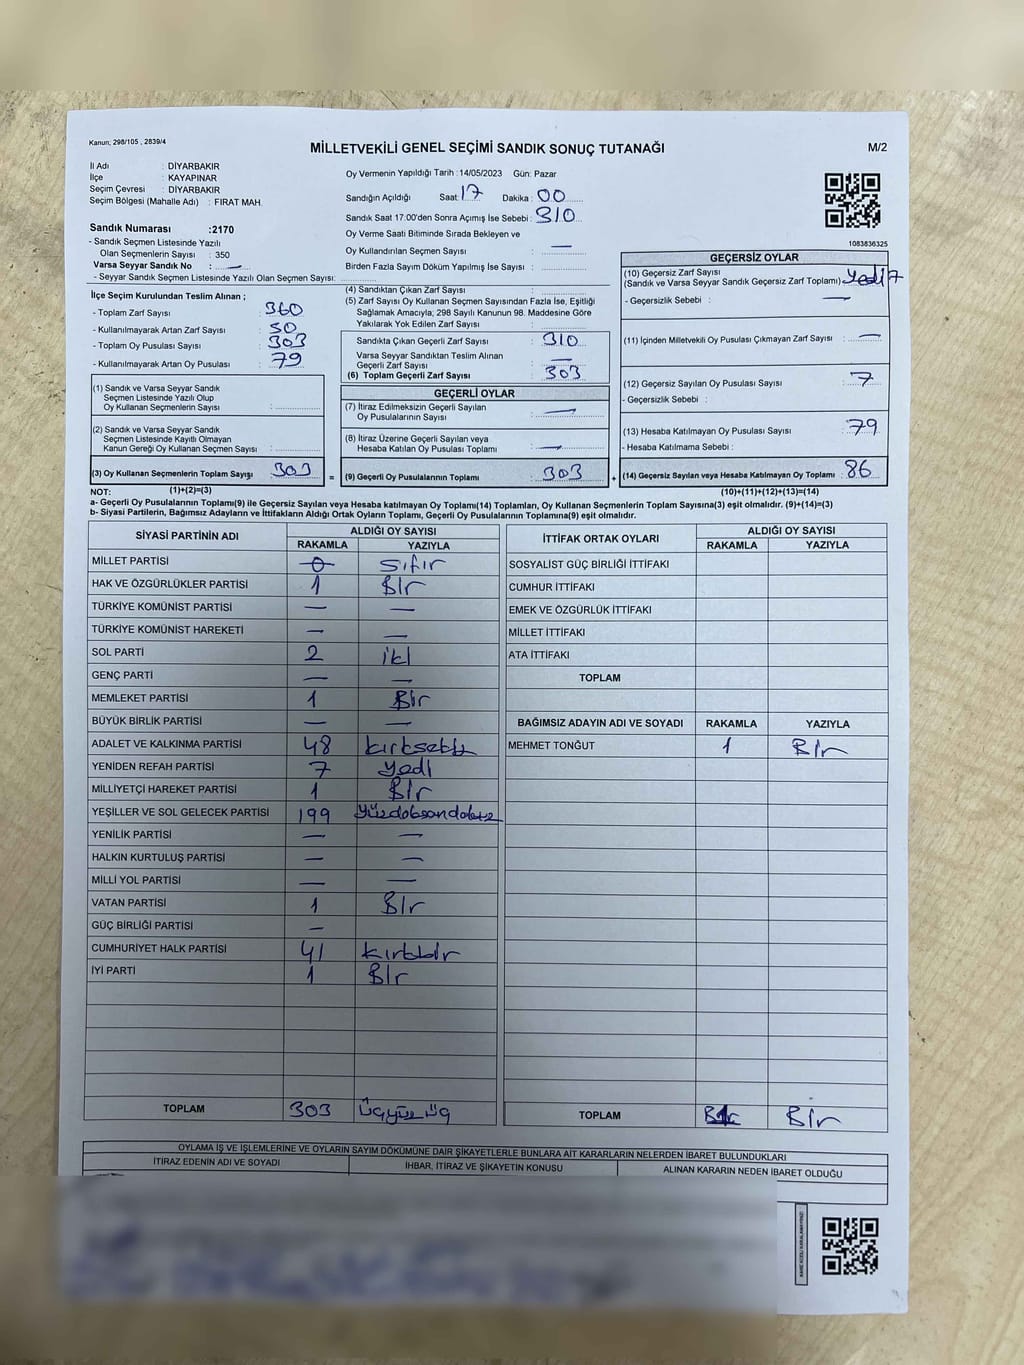 Kanun; 298/105 , 2839/4
MİLLETVEKİLİ GENEL SEÇİMİ SANDIK SONUÇ TUTANAĞI
M/2
İl Adı : DİYARBAKIR
İlçe : KAYAPINAR
Seçim Çevresi : DİYARBAKIR
Seçim Bölgesi (Mahalle Adı) : FIRAT MAH.
Sandık Numarası :2170
- Sandık Seçmen Listesinde Yazılı
Olan Seçmenlerin Sayısı : 350
Varsa Seyyar Sandık No : —
- Seyyar Sandık Seçmen Listesinde Yazılı Olan Seçmen Sayısı:
Oy Vermenin Yapıldığı Tarih :14/05/2023 Gün: Pazar
Sandığın Açıldığı Saat: 17 Dakika : 00
Sandık Saat 17:00'den Sonra Açımış İse Sebebi : 310
Oy Verme Saati Bitiminde Sırada Bekleyen ve
Oy Kullandırılan Seçmen Sayısı : —
Birden Fazla Sayım Döküm Yapılmış İse Sayısı :
1083836325
İlçe Seçim Kurulundan Teslim Alınan ;
- Toplam Zarf Sayısı : 360
- Kullanılmayarak Artan Zarf Sayısı : 50
- Toplam Oy Pusulası Sayısı : 303
- Kullanılmayarak Artan Oy Pusulası : 79
(1) Sandık ve Varsa Seyyar Sandık
Seçmen Listesinde Yazılı Olup
Oy Kullanan Seçmenlerin Sayısı :
(2) Sandık ve Varsa Seyyar Sandık
Seçmen Listesinde Kayıtlı Olmayan
Kanun Gereği Oy Kullanan Seçmen Sayısı :
(3) Oy Kullanan Seçmenlerin Toplam Sayışı 303
(4) Sandıktan Çıkan Zarf Sayısı :
(5) Zarf Sayısı Oy Kullanan Seçmen Sayısından Fazla İse, Eşitliği
Sağlamak Amacıyla; 298 Sayılı Kanunun 98. Maddesine Göre
Yakılarak Yok Edilen Zarf Sayısı :
Sandıkta Çıkan Geçerli Zarf Sayısı : 310
Varsa Seyyar Sandıktan Teslim Alınan
Geçerli Zarf Sayısı : —
(6) Toplam Geçerli Zarf Sayısı : 303
GEÇERLİ OYLAR
(7) İtiraz Edilmeksizin Geçerli Sayılan
Oy Pusulalarının Sayısı : —
(8) İtiraz Üzerine Geçerli Sayılan veya
Hesaba Katılan Oy Pusulası Toplamı : —
= (9) Geçerli Oy Pusulalarının Toplamı : 303
GEÇERSİZ OYLAR
(10) Geçersiz Zarf Sayısı
(Sandık ve Varsa Seyyar Sandık Geçersiz Zarf Toplamı) : yedi 7
- Geçersizlik Sebebi : —
(11) İçinden Milletvekili Oy Pusulası Çıkmayan Zarf Sayısı : —
(12) Geçersiz Sayılan Oy Pusulası Sayısı : 7
- Geçersizlik Sebebi :
(13) Hesaba Katılmayan Oy Pusulası Sayısı : 79
- Hesaba Katılmama Sebebi :
+ (14) Geçersiz Sayılan veya Hesaba Katılmayan Oy Toplamı : 86
NOT: (1)+(2)=(3)
(10)+(11)+(12)+(13)=(14)
a- Geçerli Oy Pusulalarının Toplamı(9) ile Geçersiz Sayılan veya Hesaba katılmayan Oy Toplamı(14) Toplamları, Oy Kullanan Seçmenlerin Toplam Sayısına(3) eşit olmalıdır. (9)+(14)=(3)
b- Siyasi Partilerin, Bağımsız Adayların ve İttifakların Aldığı Ortak Oyların Toplamı, Geçerli Oy Pusulalarının Toplamına(9) eşit olmalıdır.
SİYASİ PARTİNİN ADI ALDIĞI OY SAYISI
RAKAMLA YAZIYLA
MİLLET PARTİSİ 0 sıfır
HAK VE ÖZGÜRLÜKLER PARTİSİ 1 Bir
TÜRKİYE KOMÜNİST PARTİSİ — —
TÜRKİYE KOMÜNİST HAREKETİ — —
SOL PARTİ 2 iki
GENÇ PARTİ — —
MEMLEKET PARTİSİ 1 Bir
BÜYÜK BİRLİK PARTİSİ — —
ADALET VE KALKINMA PARTİSİ 48
YENİDEN REFAH PARTİSİ 7 yedi
MİLLİYETÇİ HAREKET PARTİSİ 1 Bir
YEŞİLLER VE SOL GELECEK PARTİSİ 199
YENİLİK PARTİSİ — —
HALKIN KURTULUŞ PARTİSİ — —
MİLLİ YOL PARTİSİ — —
VATAN PARTİSİ 1 Bir
GÜÇ BİRLİĞİ PARTİSİ —
CUMHURİYET HALK PARTİSİ 41 kırkbir
İYİ PARTİ 1 Bir
TOPLAM 303 üçyüzüç
İTTİFAK ORTAK OYLARI ALDIĞI OY SAYISI
RAKAMLA YAZIYLA
SOSYALİST GÜÇ BİRLİĞİ İTTİFAKI
CUMHUR İTTİFAKI
EMEK VE ÖZGÜRLÜK İTTİFAKI
MİLLET İTTİFAKI
ATA İTTİFAKI
TOPLAM
BAĞIMSIZ ADAYIN ADI VE SOYADI RAKAMLA YAZIYLA
MEHMET TONĞUT 1 Bir
TOPLAM Bir
OYLAMA İŞ VE İŞLEMLERİNE VE OYLARIN SAYIM DÖKÜMÜNE DAİR ŞİKAYETLERLE BUNLARA AİT KARARLARIN NELERDEN İBARET BULUNDUKLARI
İTİRAZ EDENİN ADI VE SOYADI İHBAR, İTİRAZ VE ŞİKAYETİN KONUSU ALINAN KARARIN NEDEN İBARET OLDUĞU